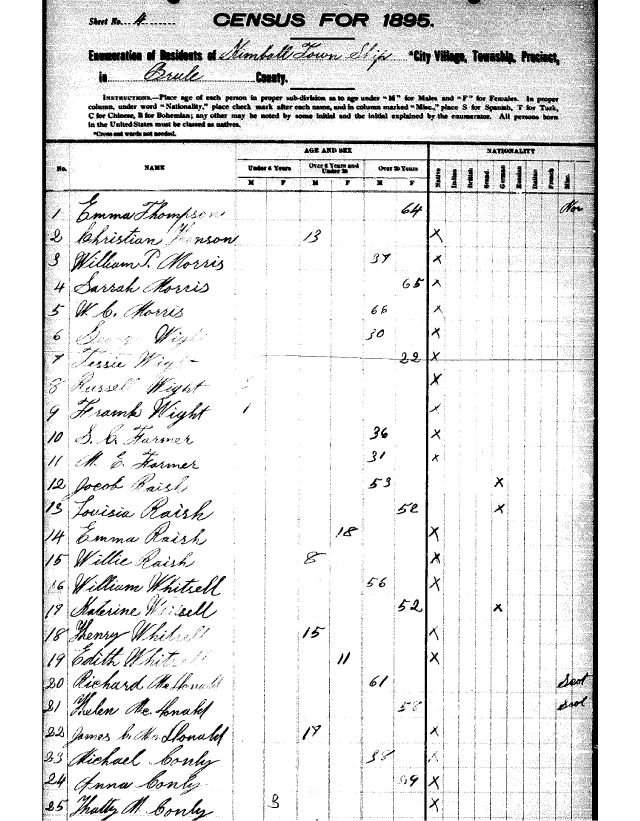 Sheet No. 4
CENSUS FOR 1895.
Enumeration of Residents of Kimball Town Ship *City Village, Township, Precinct,
in Brule County.
INSTRUCTIONS.—Place age of each person in proper sub-division as to age under "M" for Males and "F" for Females. In proper
column, under word "Nationality," place check mark after each name, and in column marked "Misc.," place S for Spanish, T for Turk,
C for Chinese, B for Bohemian; any other may be noted by some initial and the initial explained by the enumerator. All persons born
in the United States must be classed as natives.
*Cross out words not needed.
AGE AND SEX NATIONALITY
No. NAME Under 6 Years Over 6 Years and Under 20 Over 20 Years Native Italian British German Russian French Misc.
M F M F M F
1 Emma Thompson 64 Nor
2 Christian 13 X
3 William P. Morris 37 X
4 Sarrah Morris 65 X
5 W. C. Morris 66 X
6 Wight 30 X
7 Wight 22 X
8 Russell Wight X
9 Frank Wight 1 X
10 S. C. Farmer 36 X
11 M. E. Farmer 31 X
12 Jacob Raish 53 X
13 Louisia Raish 52 X
14 Emma Raish 18 X
15 Willie Raish 8 X
16 William Whitsell 56 X
17 Katerine Whitsell 52 X
18 Henry Whitsell 15 X
19 Edith Whitsell 11 X
20 Richard McDonald 61 Scot
21 Helen McDonald 58 Scot
22 James McDonald 17 X
23 Michael Conly 38 X
24 Anna Conly X
25 M Conly 3 X